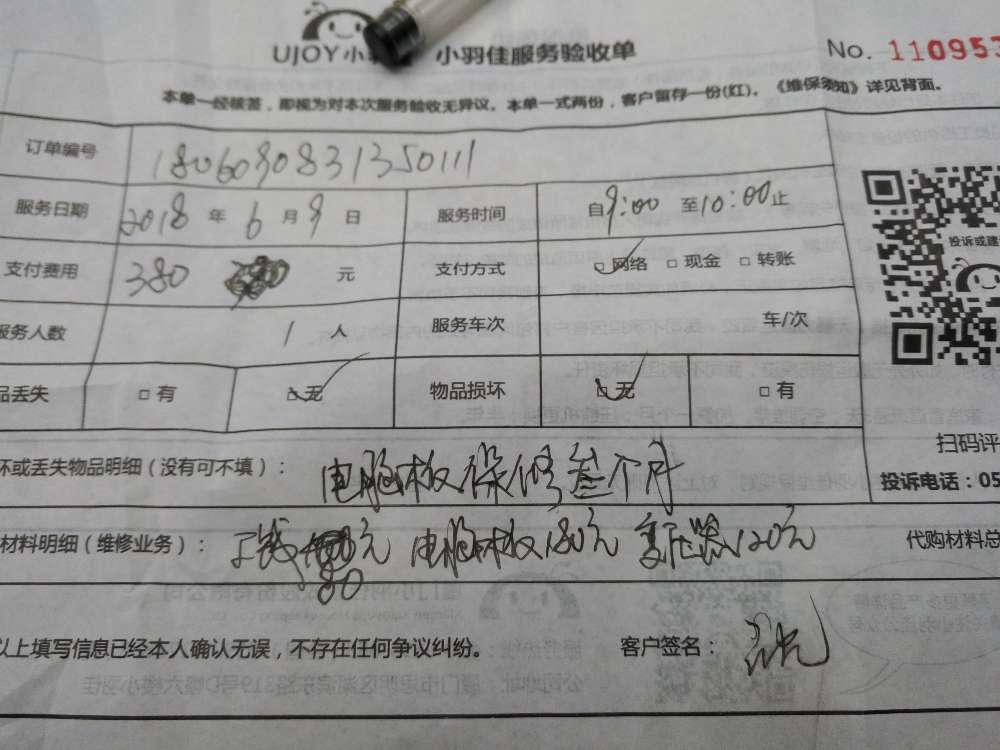 UJOY小 小羽佳服务验收单
No. 110953
本单一经核签,即视为对本次服务验收无异议。本单一式两份,客户留存一份(红)。《维保须知》详见背面。
订单编号 1806090831350111
服务日期 2018 年 6 月 9 日 服务时间 自9:00 至10:00止
支付费用 380 元 支付方式 网络 □ 现金 □ 转账
投诉或建
服务人数 1 人 服务车次 车/次
品丢失 □ 有 无 物品损坏 无 □ 有
扫码评
坏或丢失物品明细(没有可不填): 电脑板保修叁个月
投诉电话:05
材料明细(维修业务): 工钱80元 电脑板180元 变压器120元 代购材料总
以上填写信息已经本人确认无误,不存在任何争议纠纷。 客户签名: